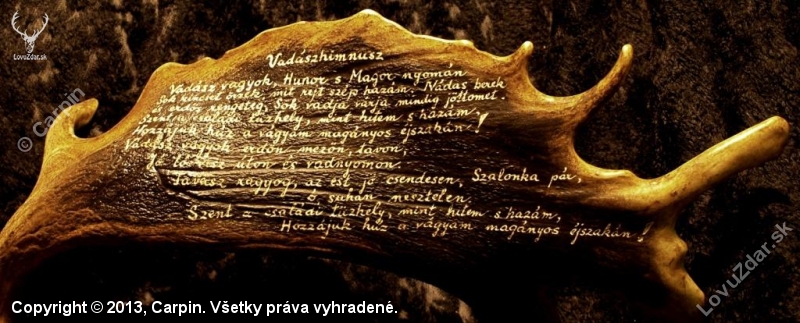 LovuZdar.sk
© Carpin
Vadászhimnusz
Vadász vagyok, Hunor s Magor nyomán
Sok kincset őrzök, mit rejt szép hazám. Nádas berek
s erdőrengeteg, Sok vadja várja mindig jöttömet.
Szent a családi tűzhely, mint hitem s hazám,
Hozzájuk húz a vágyam magányos éjszakán!
Vadász vagyok erdőn mezőn, tavon,
úton és vadnyomon.
Tavasz ragyog, az est jő csendesen, Szalonka pár,
ő suhan nesztelen.
Szent a családi tűzhely, mint hitem s hazám,
Hozzájuk húz a vágyam magányos éjszakán!
LovuZdar.sk
Copyright © 2013, Carpin. Všetky práva vyhradené.